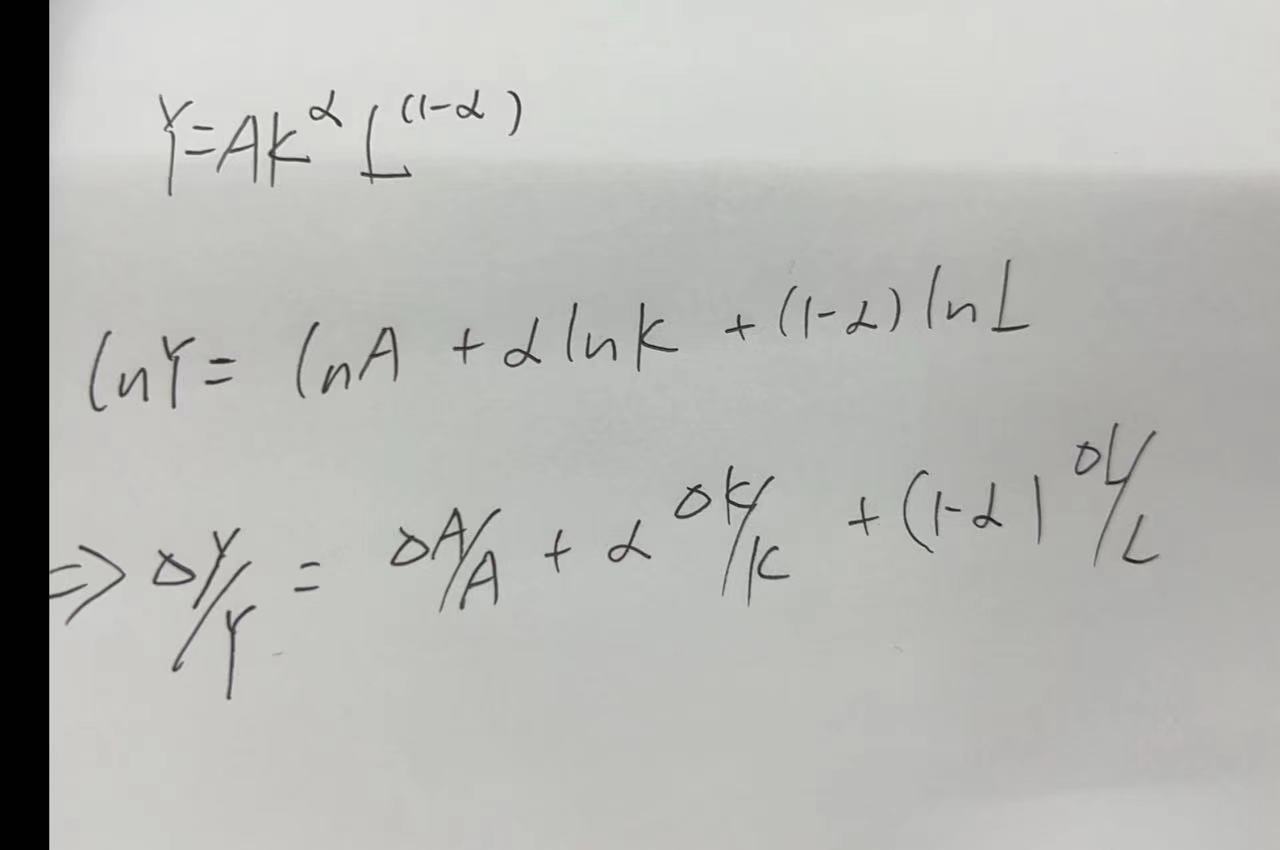 Y=AK^α L^(1-α)
lnY= lnA + α lnK + (1-α) lnL
⇒ ΔY/Y = ΔA/A + α ΔK/K + (1-α) ΔL/L